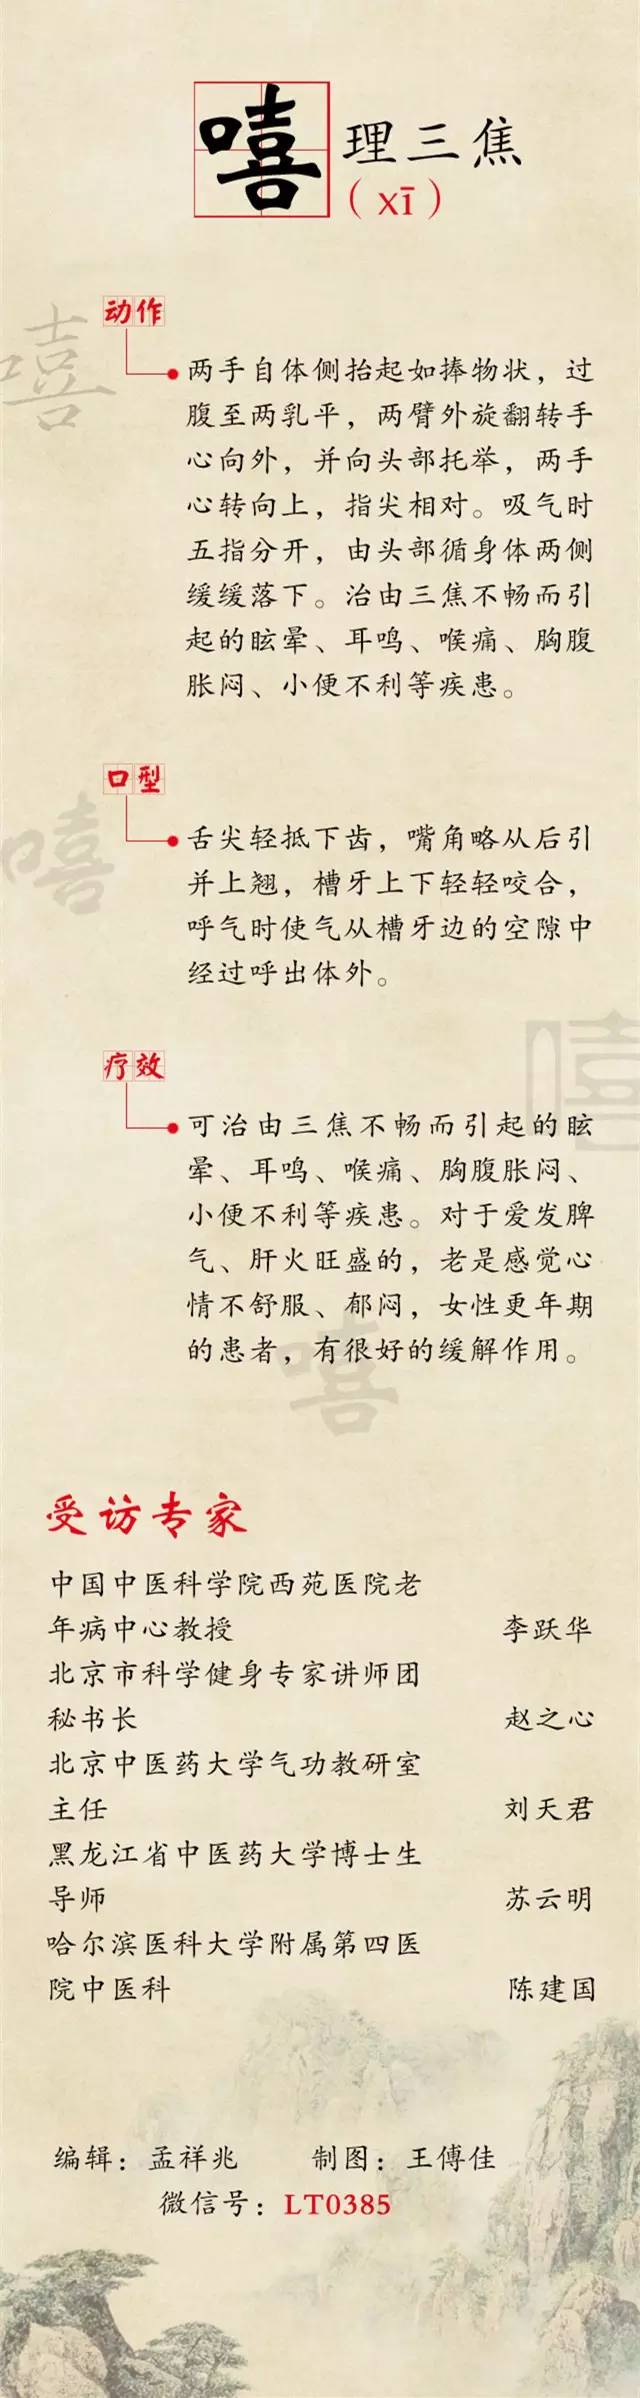 嘻 理三焦
（xī）
动作
两手自体侧抬起如捧物状，过
腹至两乳平，两臂外旋翻转手
心向外，并向头部托举，两手
心转向上，指尖相对。吸气时
五指分开，由头部循身体两侧
缓缓落下。治由三焦不畅而引
起的眩晕、耳鸣、喉痛、胸腹
胀闷、小便不利等疾患。
嘻
口型
舌尖轻抵下齿，嘴角略从后引
并上翘，槽牙上下轻轻咬合，
呼气时使气从槽牙边的空隙中
经过呼出体外。
嘻
嘻
疗效
可治由三焦不畅而引起的眩
晕、耳鸣、喉痛、胸腹胀闷、
小便不利等疾患。对于爱发脾
气、肝火旺盛的，老是感觉心
情不舒服、郁闷，女性更年期
的患者，有很好的缓解作用。
嘻
受访专家
中国中医科学院西苑医院老
年病中心教授 李跃华
北京市科学健身专家讲师团
秘书长 赵之心
北京中医药大学气功教研室
主任 刘天君
黑龙江省中医药大学博士生
导师 苏云明
哈尔滨医科大学附属第四医
院中医科 陈建国
编辑：孟祥兆 制图：王傅佳
微信号：LT0385